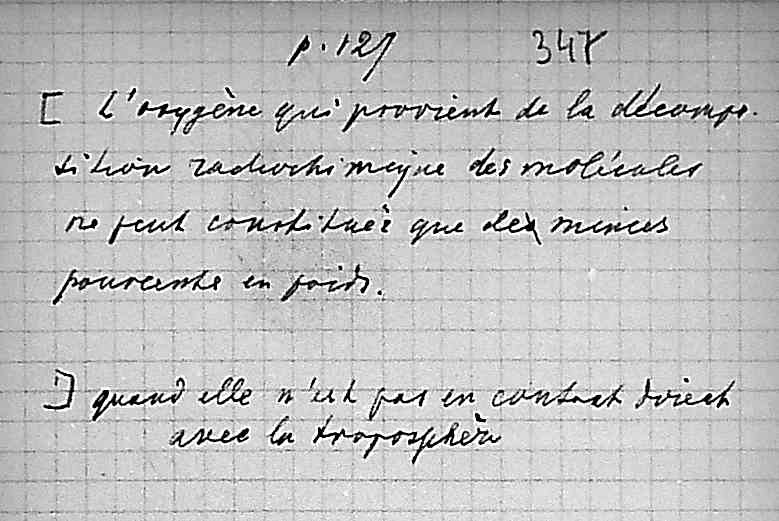 p. 127 347
[ L'oxygène qui provient de la décompo-
sition radiochimique des molécules
ne peut constituer que des minces
pourcents en poids.
] quand elle n'est pas en contact direct
avec la troposphère